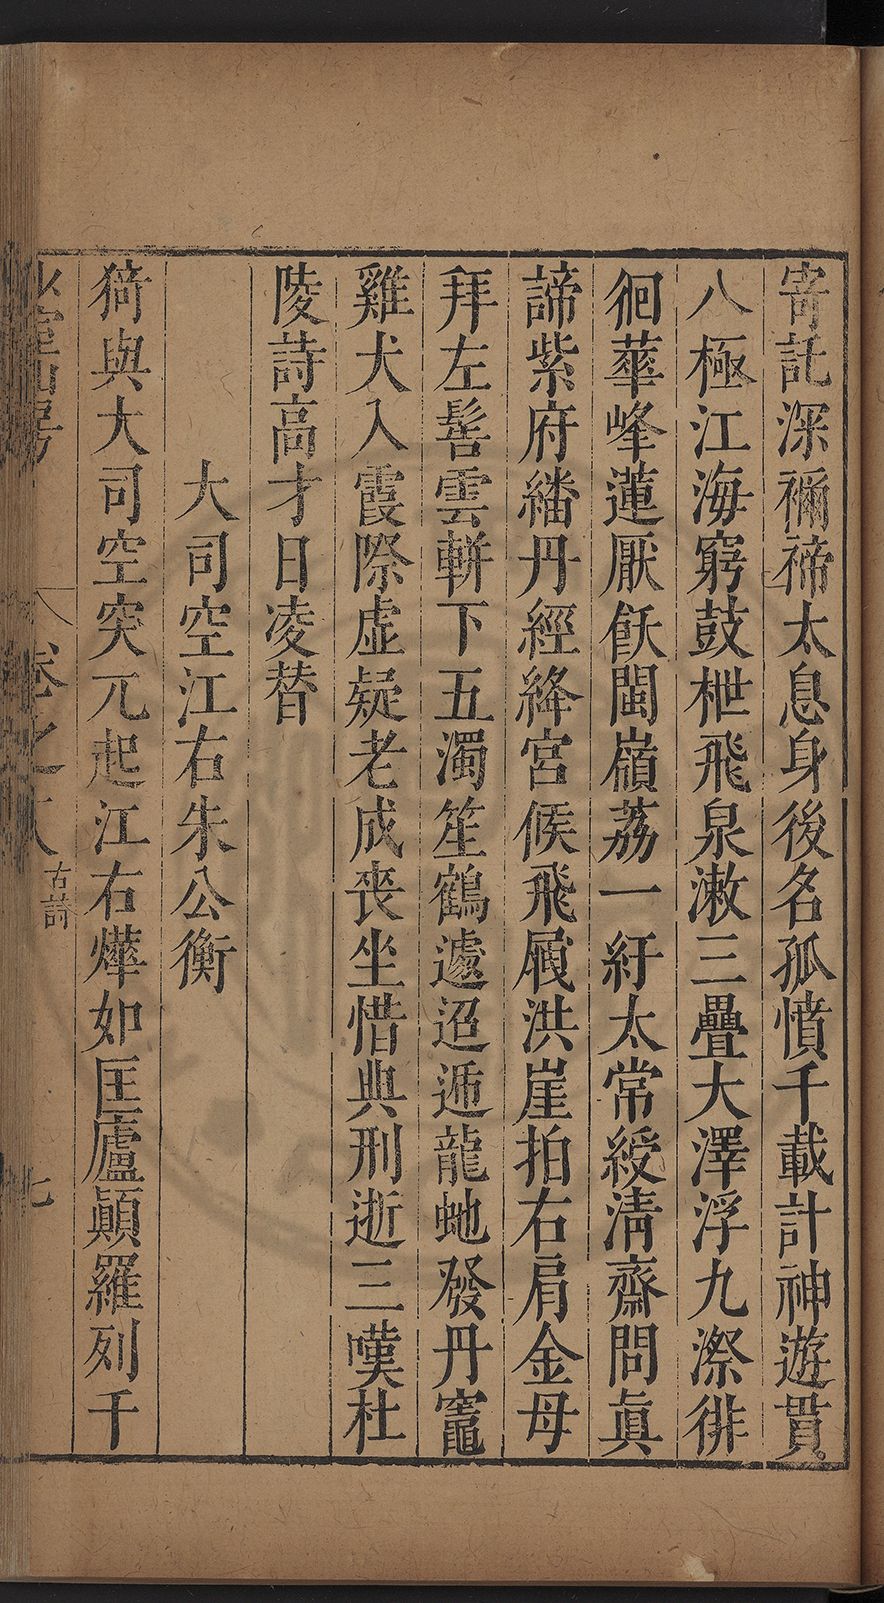 寄託深禰褅太息身後名孤憤千載計神遊貫
八極江海窮鼓枻飛泉漱三疊大澤浮九漈徘
徊華峰蓮厭飫閩嶺荔一紆太常綬清齋問眞
諦紫府繙丹經絳宮候飛屐洪崖拍右肩金母
拜左髻雲輧下五濁笙鶴遽迢遞龍虵發丹竈
雞犬入霞際虛疑老成喪坐惜典刑逝三嘆杜
陵詩高才日凌替
大司空江右朱公衡
猗與大司空突兀起江右燁如匡廬顚羅列千
卷之 古詩 七